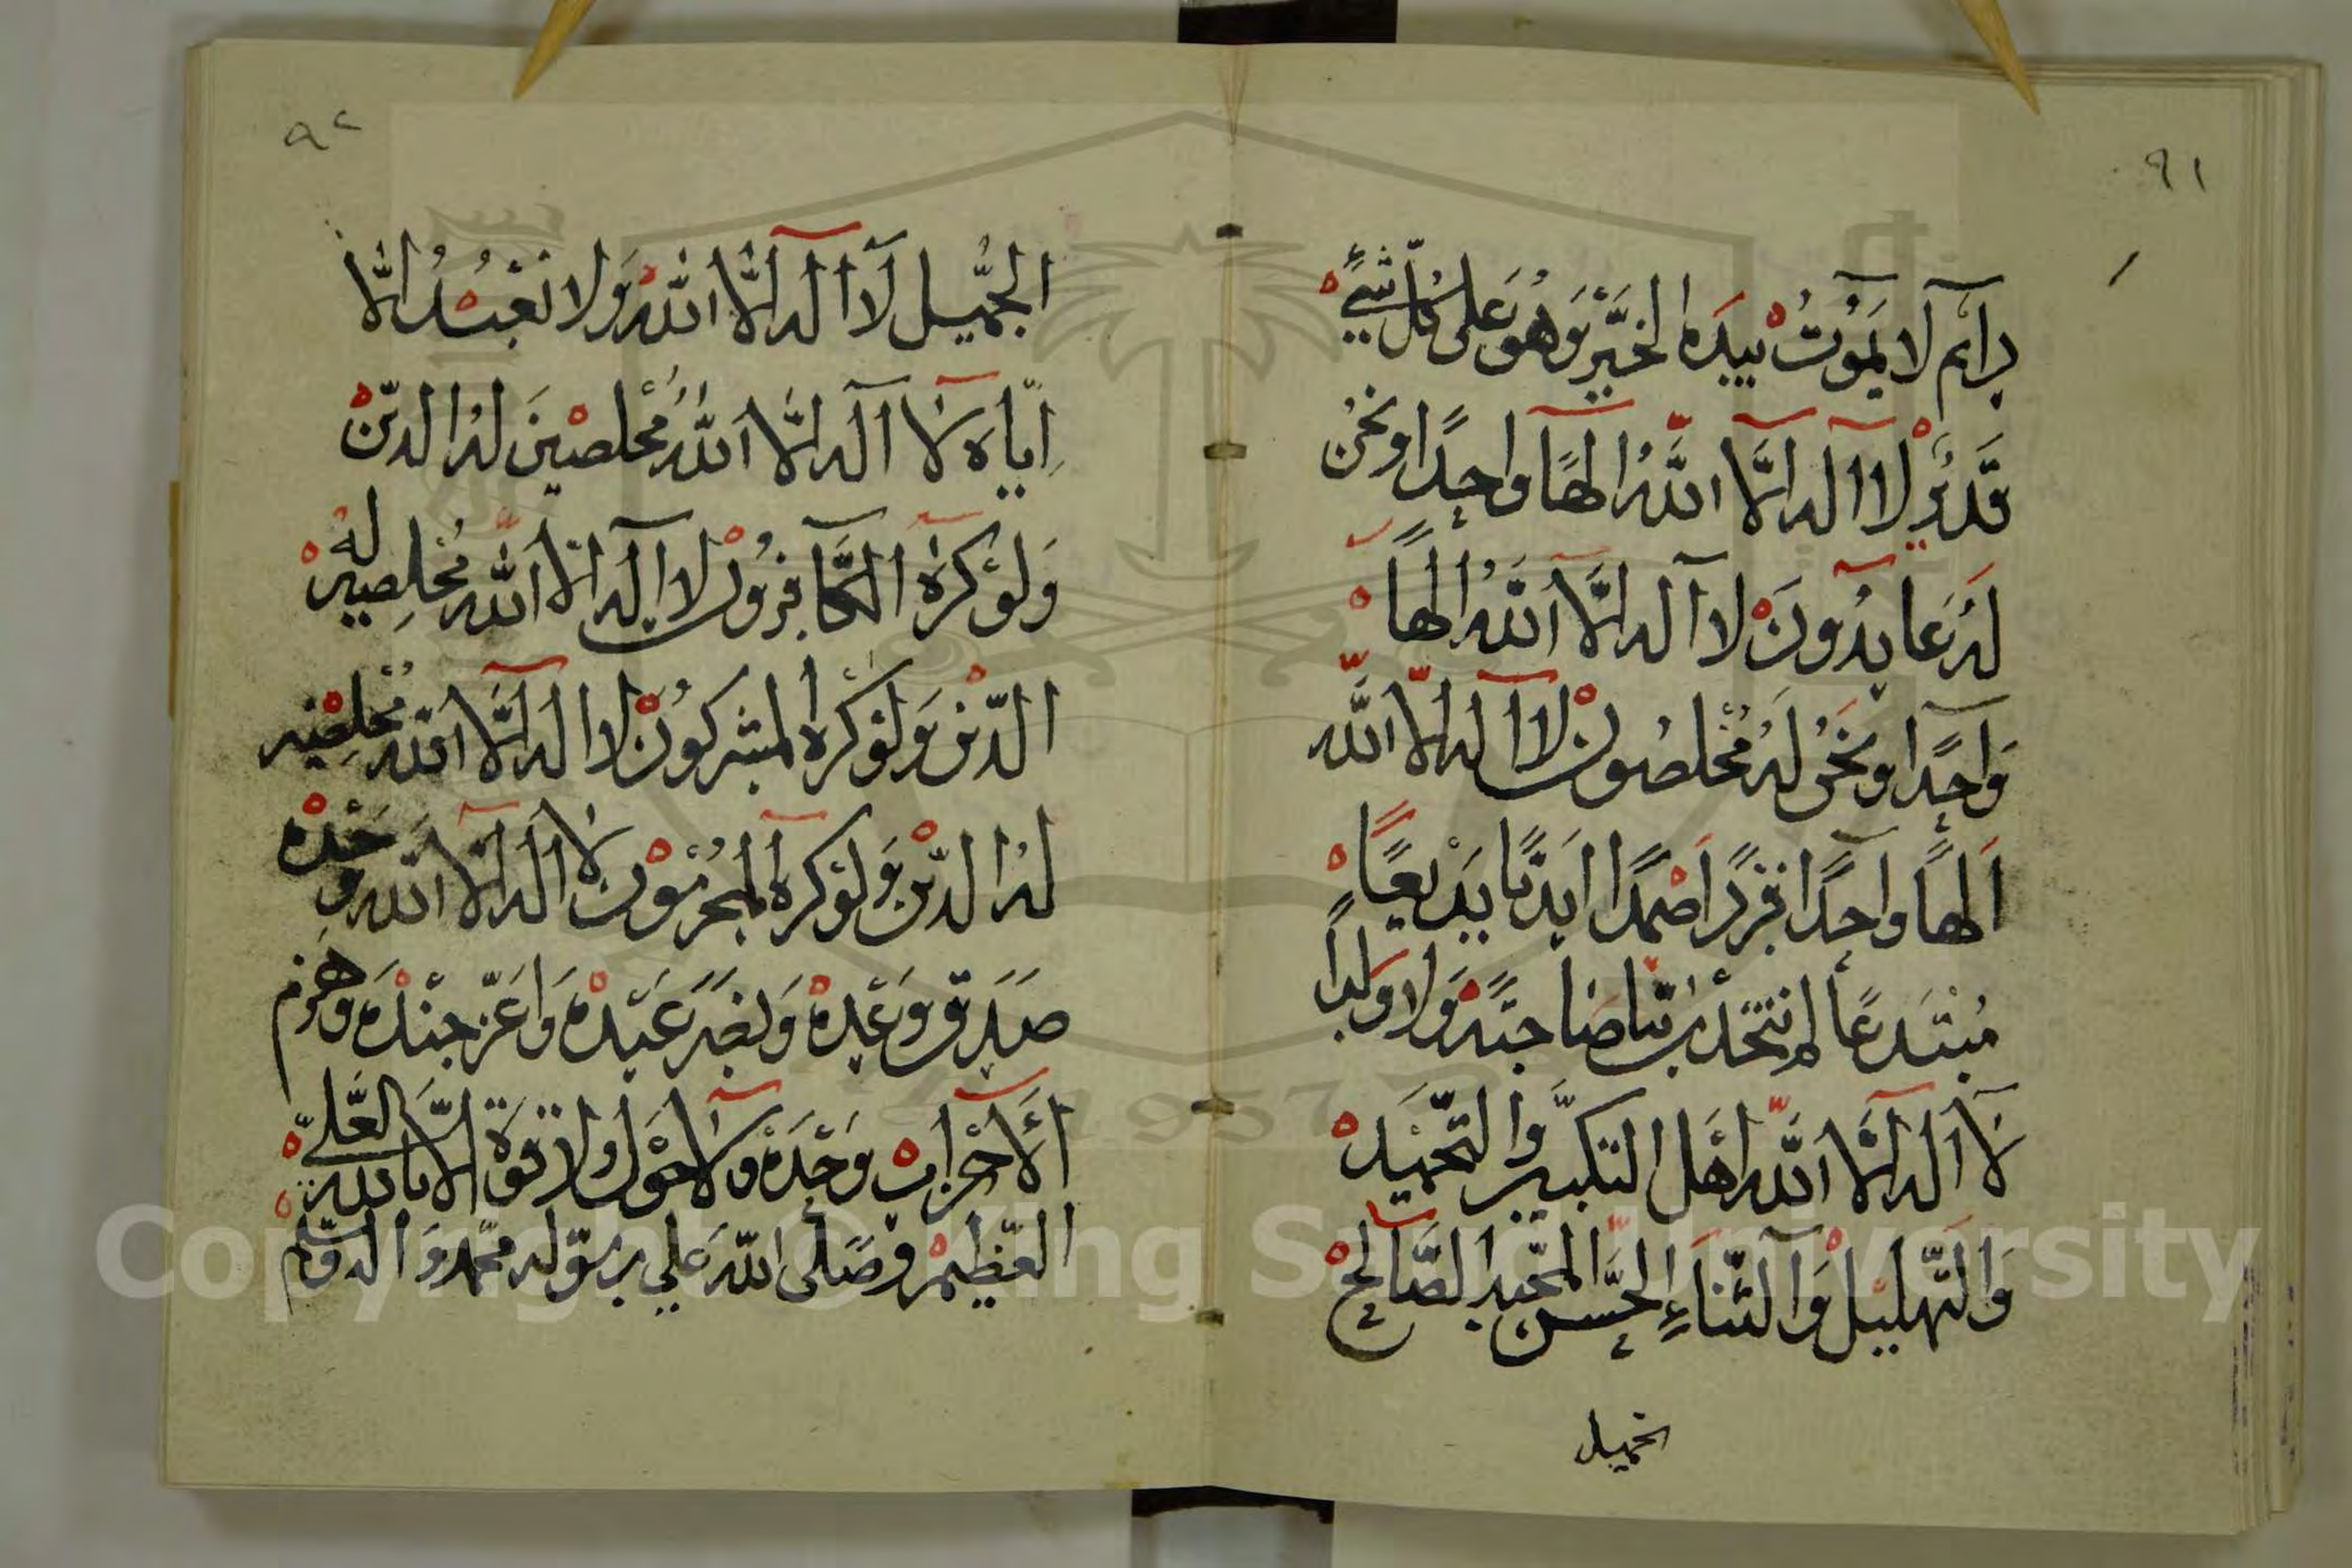 ٩١
دائم لا يموت بيده الخير وهو على كل شيء
قدير لا اله الا الله الها واحدا ونحن
له عابدون لا اله الا الله الها
واحدا ونحن له مخلصون لا اله الا الله
الها واحدا فردا صمدا ابديا بديعا
مبتدعا لم نتخذ ربا صاحبة ولا ولدا
لا اله الا الله اهل التكبير والتحميد
والتهليل والثناء الحسن المجيد الصالح
الجميل
٩٢
الجميل لا اله الا الله ولا نعبد الا
اياه لا اله الا الله مخلصين له الدين
ولو كره الكافرون لا اله الا الله مخلصين له
الدين ولو كره المشركون لا اله الا الله مخلصين
له الدين ولو كره المجرمون لا اله الا الله وحده
صدق وعده ونصر عبده واعز جنده وهزم
الاحزاب وحده ولا حول ولا قوة الا بالله العلي
العظيم وصلى الله علي رسوله محمد واله وسلم
Copyright © King Saud University
1957